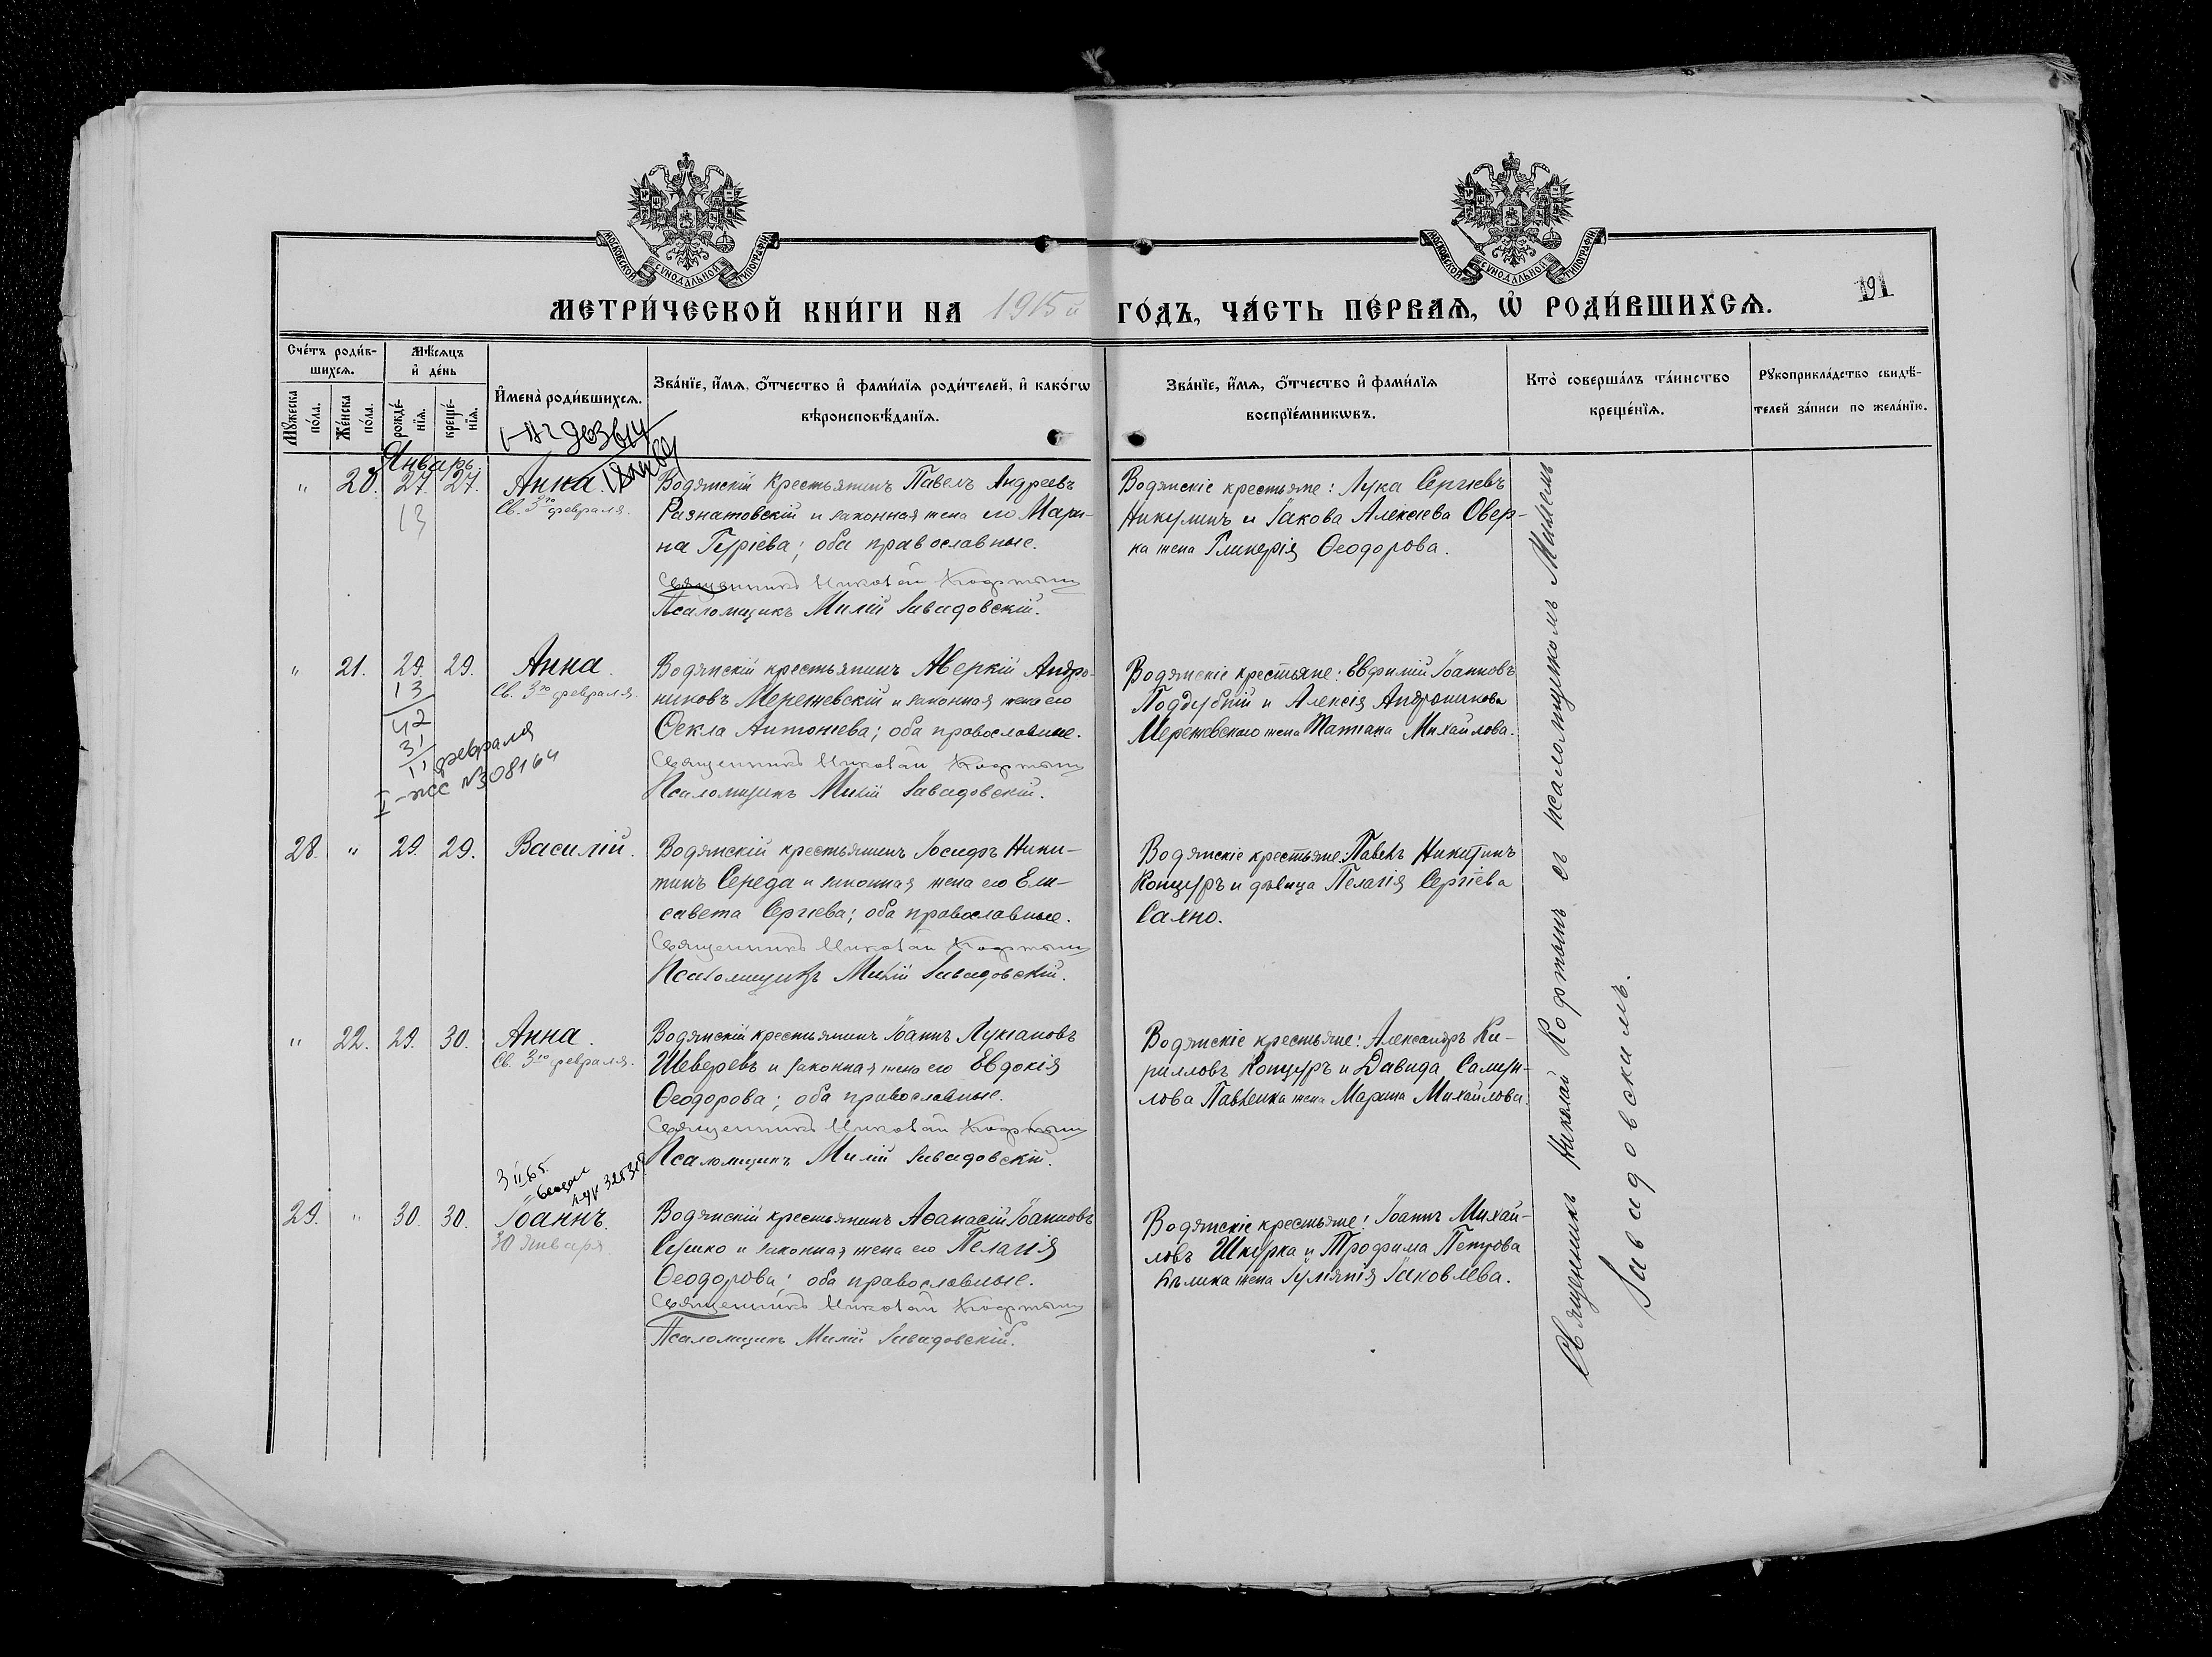 МОСКОВСКОЙ СѴНОДАЛЬНОЙ ТИПОГРАФІИ
МОСКОВСКОЙ СѴНОДАЛЬНОЙ ТИПОГРАФІИ
191
МЕТРИ́ЧЕСКОЙ КНИ́ГИ НА 1915й ГО́ДЪ, ЧА́СТЬ ПЕ́РВАѦ, Ѡ҆ РОДИ́ВШИХСѦ.
Сче́тъ роди́в-
шихсѧ.
Мѣ́сѧцъ
и҆ де́нь
Мꙋ́жеска
по́ла.
Же́нска
по́ла.
рожде́-
нїѧ.
креще́-
нїѧ.
И҆мена̀ роди́вшихсѧ.
Зва́нїе, и҆́мѧ, ѻ҆́тчество и҆ фами́лїѧ роди́телей, и҆ како́гѡ
вѣроисповѣ́данїѧ.
Зва́нїе, и҆́мѧ, ѻ҆́тчество и҆ фами́лїѧ
воспрїе́мникѡвъ.
Кто̀ соверша́лъ та́инство
креще́нїѧ.
Рꙋкоприкла́дство свидѣ́-
телей за́писи по жела́нїю.
Январь.
" 20. 27. 27. Анна.
Св. 3го февраля.
13
Водянскій крестьянинъ Павелъ Андреевъ
Разнатовскій и законная жена его Мари-
на Гуріева; оба православные.
Священникъ Николай
Псаломщикъ Милій Завадовскій.
Водянскіе крестьяне: Лука Сергіевъ
Никулинъ и Іакова Алексіева Овер-
ка жена Гликерія Ѳеодорова.
" 21. 29. 29. Анна.
Св. 3го февраля.
13
42
31
11 февраля
I-жс №308164
Водянскій крестьянинъ Аверкій Андро-
никовъ Мережевскій и законная жена его
Ѳекла Антоніева; оба православные.
Священникъ Николай
Псаломщикъ Милій Завадовскій.
Водянскіе крестьяне: Евфимій Іоанновъ
Поддубный и Алексія Андроникова
Мережевскаго жена Татіана Михайлова.
28. " 29. 29. Василій.
Водянскій крестьянинъ Іосифъ Ники-
тинъ Середа и законная жена его Ели-
савета Сергіева; оба православные.
Священникъ Николай
Псаломщикъ Милій Завадовскій.
Водянскіе крестьяне: Павелъ Никитинъ
Концуръ и дѣвица Пелагія Сергіева
Сахно.
" 22. 29. 30. Анна.
Св. 3го февраля.
Водянскій крестьянинъ Іоаннъ Лукіановъ
Шеверевъ и законная жена его Евдокія
Ѳеодорова; оба православные.
Священникъ Николай
Псаломщикъ Милій Завадовскій.
Водянскіе крестьяне: Александръ Ки-
рилловъ Концуръ и Давида Самуи-
лова Павленка жена Марина Михайлова.
29. " 30. 30. Іоаннъ.
30 января
Водянскій крестьянинъ Аѳанасій Іоанновъ
Сушко и законная жена его Пелагія
Ѳеодорова; оба православные.
Священникъ Николай
Псаломщикъ Милій Завадовскій.
Водянскіе крестьяне: Іоаннъ Михай-
ловъ Шкурка и Трофима Петрова
Бѣлика жена Іуліанія Іаковлева.
Священникъ Николай съ псаломщикомъ Миліемъ
Завадовскимъ.